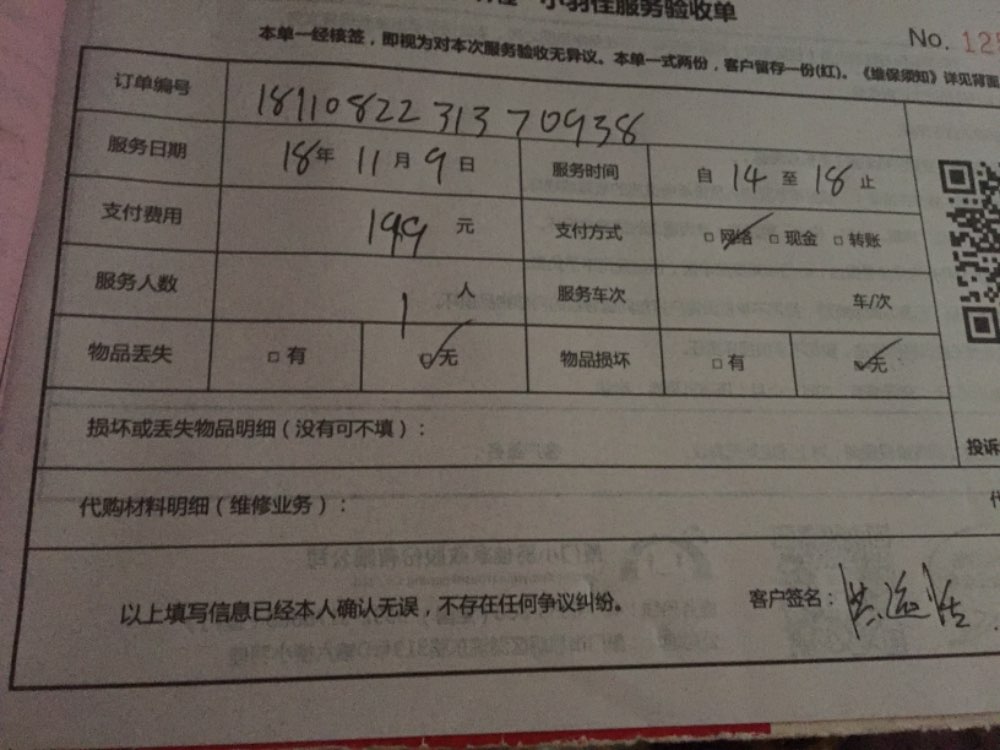 小羽佳服务验收单
No. 125
本单一经核签，即视为对本次服务验收无异议。本单一式两份，客户留存一份(红)。《维保须知》详见背面
订单编号 1811082231370938
服务日期 18年 11月 9日 服务时间 自 14 至 18 止
支付费用 199 元 支付方式 □网络 □现金 □转账
服务人数 1 人 服务车次 车/次
物品丢失 □有 □无 物品损坏 □有 □无
损坏或丢失物品明细（没有可不填）：
投诉
代购材料明细（维修业务）：
以上填写信息已经本人确认无误，不存在任何争议纠纷。 客户签名：